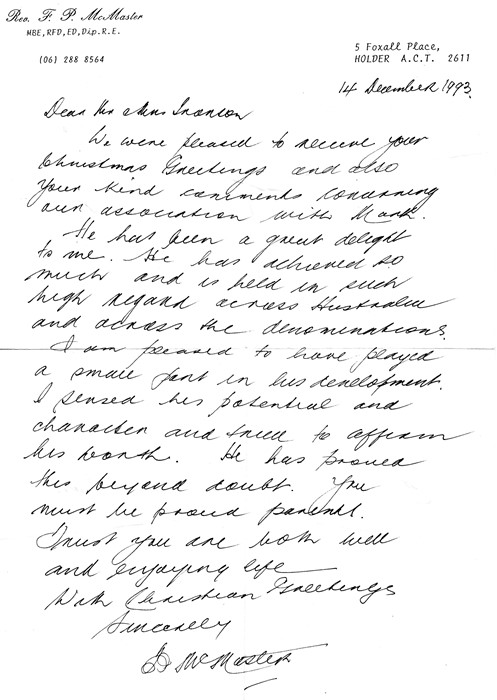 Rev. F. P. McMaster
MBE,RFD,ED,Dip.R.E.
(06) 288 8564
5 Foxall Place,
HOLDER A.C.T. 2611
14 December 1993.
Dear Mr &Mrs
We were pleased to receive your
Christmas Greetings and also
your kind comments concerning
our association with Mark.
He has been a great delight
to me. He has achieved so
much and is held in such
high regard across Australia
and across the denominations.
I am pleased to have played
a small part in his development.
I sensed his potential and
character and tried to affirm
his worth. He has proved
this beyond doubt. You
must be proud parents.
I trust you are both well
and enjoying life
With Christian Greetings
Sincerely
McMaster